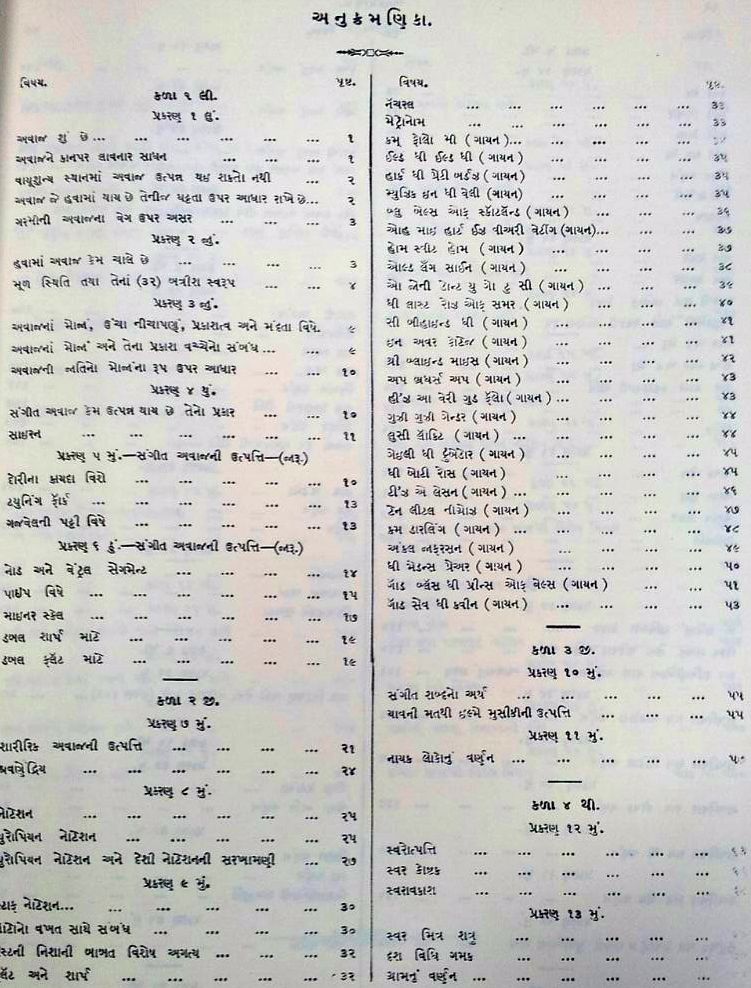 અનુક્રમણિકા.
વિષય. પૃષ્ઠ.
કળા ૧ લી.
પ્રકરણ ૧ લું.
અવાજ શું છે... ... ... ... ... ૧
અવાજને કાનપર લાવનાર સાધન ... ... ... ૧
વાયૂશુન્ય સ્થાનમાં અવાજ ઉત્પન્ન થઇ શકતો નથી ... ૨
અવાજ જે હવામાં થાય છે તેનીજ ઘટ્ટતા ઉપર આધાર રાખે છે... ૨
ગરમીની અવાજના વેગ ઉપર અસર ... ... ... ૩
પ્રકરણ ૨ જું.
હવામાં અવાજ કેમ ચાલે છે ... ... ... ... ૩
મૂળ સ્થિતિ તથા તેનાં (૩૨) બત્રીશ સ્વરૂપ ... ... ૪
પ્રકરણ ૩ જું.
અવાજનાં મોજાં, ઉંચા નીચાપણું, પ્રકારત્વ અને મંદતા વિષે. ૯
અવાજનાં મોજાં અને તેના પ્રકારો વચ્ચેનો સંબંધ ... ... ૯
અવાજની જાતિનો મોજાંના રૂપ ઉપર આધાર ... ... ૧૦
પ્રકરણ ૪ થું.
સંગીત અવાજ કેમ ઉત્પન્ન થાય છે તેનો પ્રકાર ... ... ૧૦
સાઇરન ... ... ... ... ... ... ૧૧
પ્રકરણ ૫ મું.—સંગીત અવાજની ઉત્પત્તિ—(જારૂ.)
દોરીના કાયદા વિશે ... ... ... ... ... ૧૦
ટયુનિંગ ફૉર્ક ... ... ... ... ... ૧૩
ગજવેલની પટ્ટી વિષે ... ... ... ... ... ૧૩
પ્રકરણ ૬ ઠું.—સંગીત અવાજની ઉત્પત્તિ—(જારૂ.)
નોડ અને વેંટ્રલ સેગમેન્ટ ... ... ... ... ૧૪
પાઇપ વિષે ... ... ... ... ... ૧૫
માઇનર સ્કેલ ... ... ... ... ... ૧૭
ડબલ શાર્પ માટે ... ... ... ... ... ૧૯
ડબલ ફ્લૅટ માટે ... ... ... ... ... ૧૯
કળા ૨ જી.
પ્રકરણ ૭ મું.
શારીરિક અવાજની ઉત્પત્તિ ... ... ... ... ૨૧
શ્રવણેંદ્રિય ... ... ... ... ... ૨૪
પ્રકરણ ૮ મું.
નોટેશન ... ... ... ... ... ૨૫
યુરોપિયન નોટેશન ... ... ... ... ... ૨૫
યુરોપિયન નોટેશન અને દેશી નોટેશનની સરખામણી ૨૭
પ્રકરણ ૯ મું.
સ્ટાફ નોટેશન... ... ... ... ... ૩૦
નોટોનો વખત સાથે સંબંધ ... ... ... ... ૩૦
રેસ્ટની નિશાની બાબત વિશેષ અગત્ય ... ... ... ૩૨
ફ્લૅટ અને શાર્પ ... ... ... ... ૩૨
વિષય. પૃષ્ઠ.
નૅચરલ ... ... ... ... ... ... ૩૩
મેટ્રોનોમ ... ... ... ... ... ... ૩૩
કમ્ ફોલો મી (ગાયન)... ... ... ... ...
ઈલ્ડ ધી ઈલ્ડ ધી (ગાયન) ... ... ... ... ૩૫
હાર્ક ધી પ્રેટી બર્ડઝ (ગાયન) ... ... ... ... ૩૫
મ્યુઝિક ઇન ધી વેલી (ગાયન) ... ... ... ... ૩૫
બ્લુ બેલ્સ ઑફ સ્કૉટલૅન્ડ (ગાયન) ... ... ... ૩૬
ઓહ માઇ હાર્ટ ઇઝ વીઅરી વેટીંગ (ગાયન)... ... ... ૩૭
હોમ સ્વીટ હોમ (ગાયન) ... ... ... ... ૩૭
ઓલ્ડ લૅંગ સાઈન (ગાયન) ... ... ... ... ૩૮
ઓ જેની ડોન્ટ યુ ગો ટુ સી (ગાયન) ... ... ... ૩૯
ધી લાસ્ટ રોઝ ઑફ સમર (ગાયન) ... ... ... ૪૦
સી બીહાઇન્ડ ધી (ગાયન) ... ... ... ... ૪૧
ઇન અવર કૉટેજ (ગાયન) ... ... ... ... ૪૧
થ્રી બ્લાઇન્ડ માઇસ (ગાયન) ... ... ... ... ૪૨
અપ બ્રધર્સ અપ (ગાયન) ... ... ... ... ૪૩
હી'ઝ આ વેરી ગુડ ફૅલો (ગાયન) ... ... ... ... ૪૩
ગુઝી ગુઝી ગેન્ડર (ગાયન) ... ... ... ... ૪૪
લુસી લૉકિટ (ગાયન) ... ... ... ... ... ૪૪
ગેઇલી ધી ટ્રુબેડોર (ગાયન) ... ... ... ... ૪૫
ધી બોટી રેસ (ગાયન) ... ... ... ... ૪૫
ટી'ઝ એ લેસન (ગાયન) ... ... ... ... ... ૪૬
ટેન લીટલ નીગ્રોઝ (ગાયન) ... ... ... ... ૪૭
કમ ડારલિંગ (ગાયન) ... ... ... ... ... ૪૮
અંકલ જાફરસન (ગાયન) ... ... ... ... ૪૯
ધી મેડન્સ પ્રેઅર (ગાયન) ... ... ... ... ૫૦
ગૉડ બ્લૅસ ધી પ્રીન્સ ઑફ વેલ્સ (ગાયન) ... ... ... ૫૧
ગૉડ સેવ ધી ક્વીન (ગાયન) ... ... ... ... ૫૩
કળા ૩ જી.
પ્રકરણ ૧૦ મું.
સંગીત શબ્દનો અર્થ ... ... ... ... ... ૫૫
યાવની મતથી ઇલ્મે મુસીકીની ઉત્પત્તિ ... ... ... ૫૫
પ્રકરણ ૧૧ મું.
નાયક લોકોનું વર્ણન ... ... ... ... ...
કળા ૪ થી.
પ્રકરણ ૧૨ મું.
સ્વરોત્પત્તિ ... ... ... ... ... ...
સ્વર કોષ્ટક ... ... ... ... ... ...
સ્વરાવકાશ ... ... ... ... ... ...
પ્રકરણ ૧૩ મું.
સ્વર મિત્ર શત્રુ ... ... ... ... ...
દશ વિધિ ગમક ... ... ... ... ...
ગ્રામનું વર્ણન ... ... ... ... ... ...